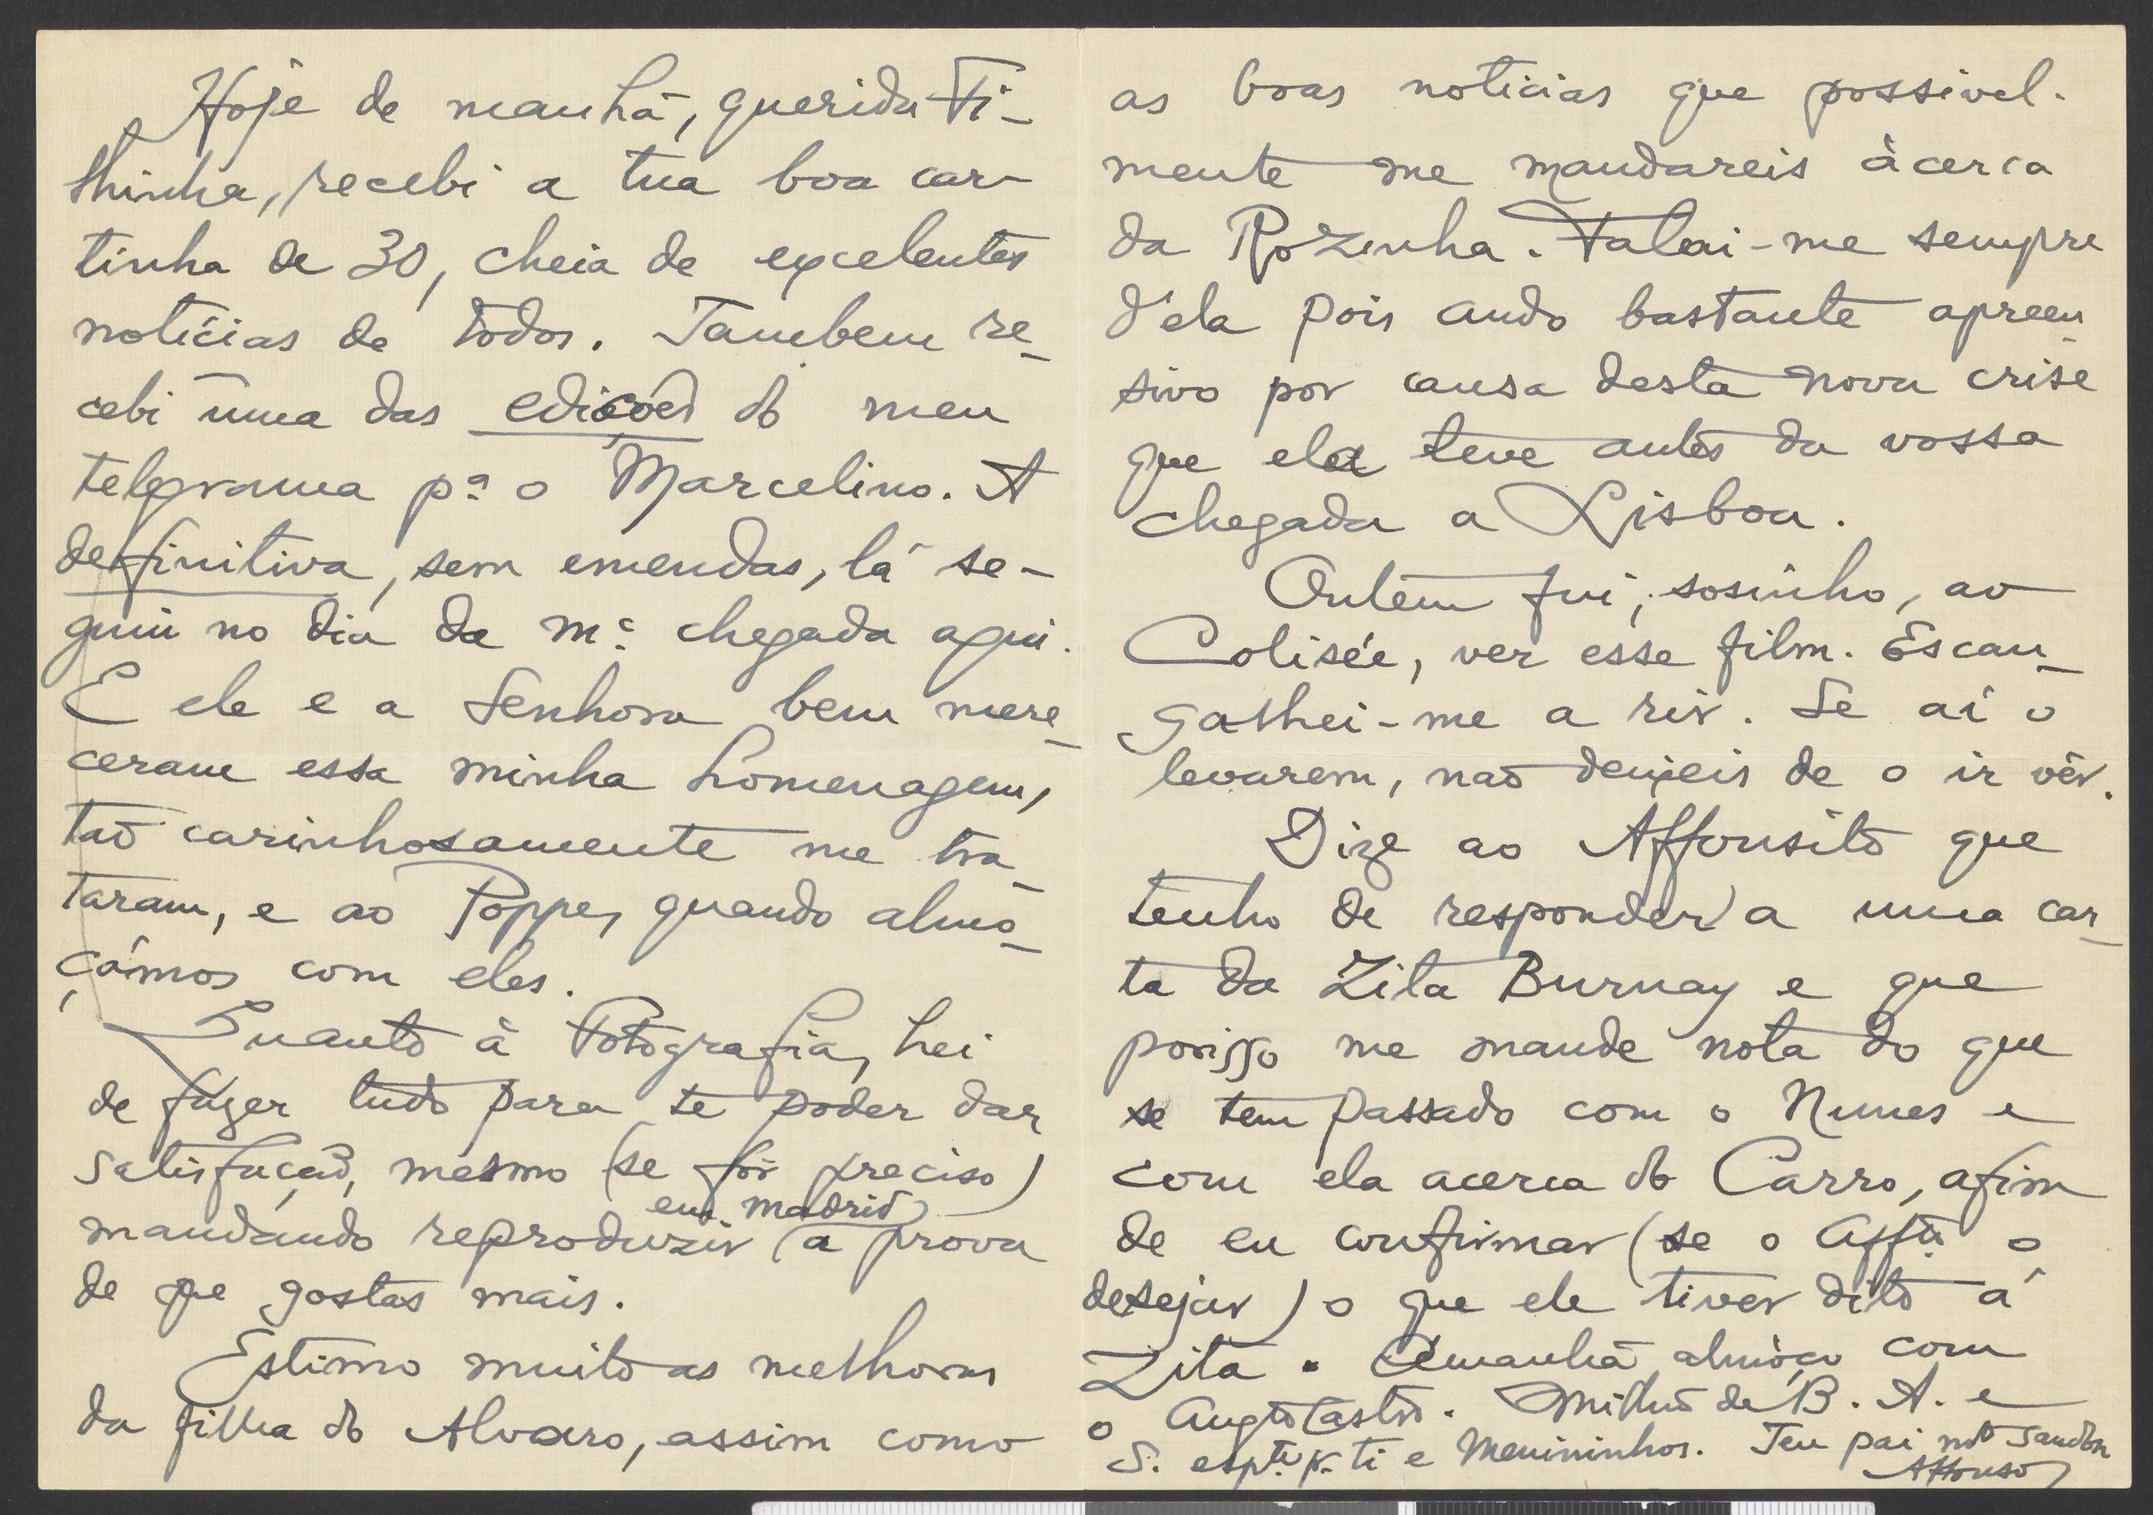 Hoje de manhã, querida Fi-
lhinha, recebi a tua boa car-
tinha de 30, cheia de excelentes
notícias de todos. Tambem re-
cebi uma das edições do meu
telegrama pª o Marcelino. A
definitiva, sem emendas, lá se-
guiu no dia da mª chegada aqui.
E ele e a Senhora bem mere-
ceram essa minha homenagem,
tão carinhosamente me tra-
taram, e ao Poppe, quando almo-
çámos com eles.
Quanto à Fotografia, hei
de fazer tudo para te poder dar
satisfação, mesmo (se fôr preciso)
mandando reproduzir (em Madrid) a prova
de que gostas mais.
Estimo muito as melhoras
da filha do Alvaro, assim como
as boas noticias que possivel-
mente me mandareis àcerca
da Rozinha. Falai-me sempre
d'ela pois ando bastante apreen-
sivo por causa desta nova crise
que ela teve antes da vossa
chegada a Lisboa.
Ontem fui, sosinho, ao
Colisée, ver esse film. Escan-
galhei-me a rir. Se aí o
levarem, não deixeis de o ir vêr.
Dize ao Affonsito que
tenho de responder a uma car-
ta da Zita Burnay e que
porisso me mande nota do que
se tem passado com o Nunes e
com ela acerca do Carro, afim
de eu confirmar (se o Affº o
desejar) o que ele tiver dito á
Zita. Amanhã almóço com
o Augto Castro. Milhão de B. A. e
S. espte pª ti e Menininhos. Teu pai mto
Affonso